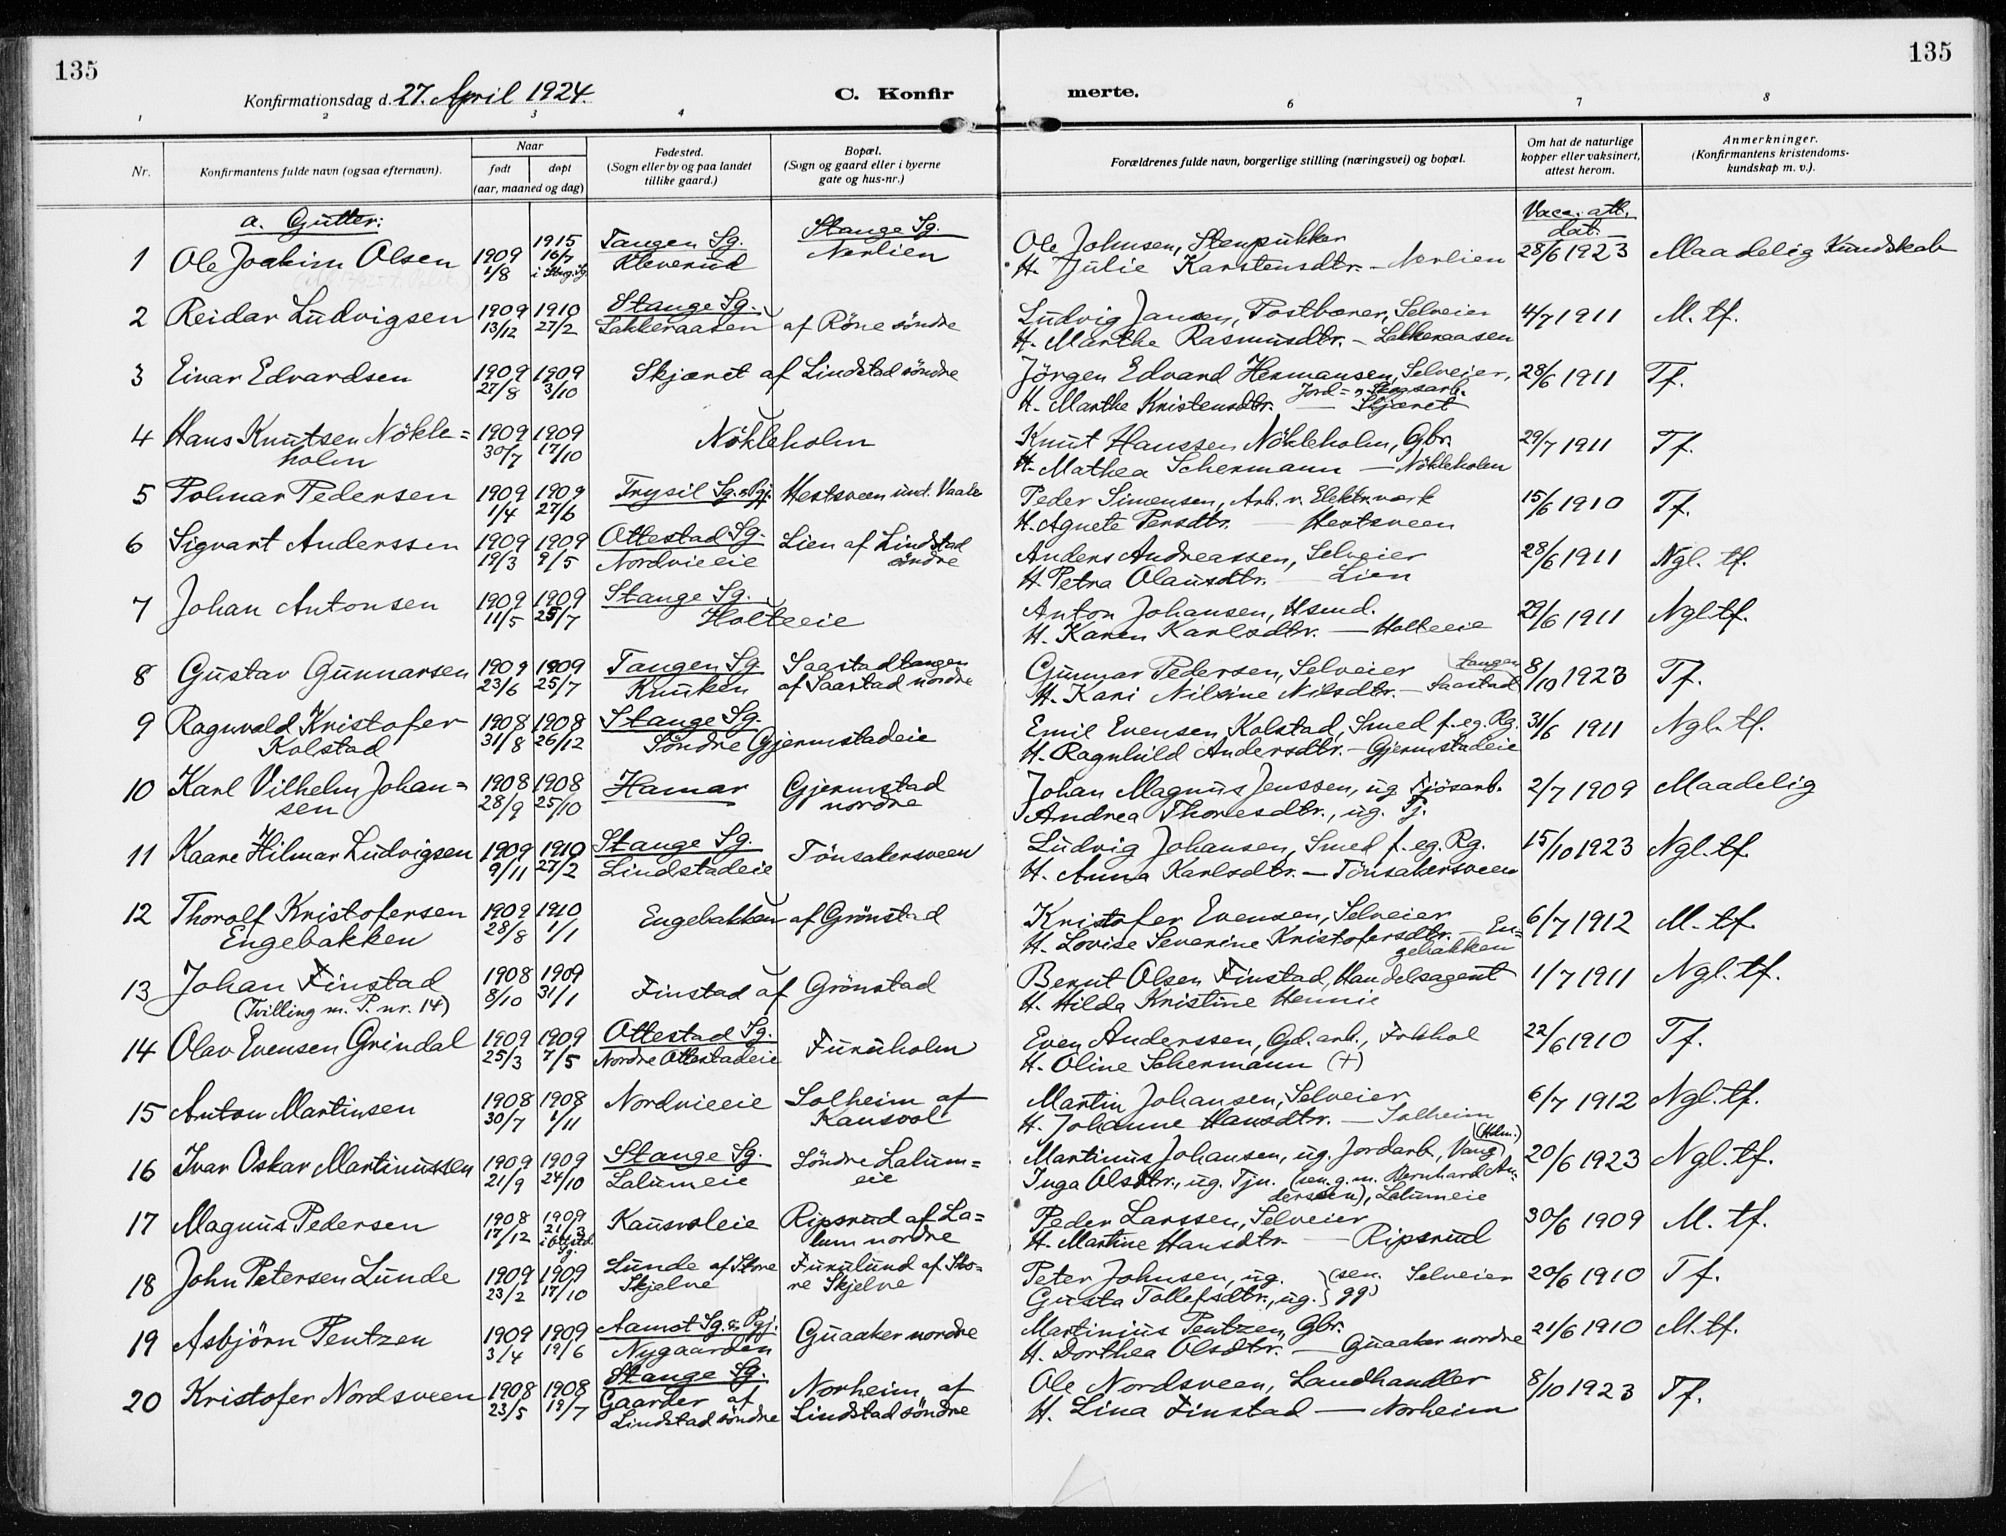 135
135
Konfirmationsdag d. 27. April 1924.
C. Konfirmerte.
1 2 3 4 6 7 8
Nr.
Konfirmantens fulde navn (ogsaa efternavn).
Naar
født
døpt
(aar, maaned og dag)
Fødested.
(Sogn eller by og paa landet
tillike gaard.)
Bopæl.
(Sogn og gaard eller i byerne
gate og hus-nr.)
Forældrenes fulde navn, borgerlige stilling (næringsvei) og bopæl.
Om hat de naturlige
kopper eller vaksinert,
attest herom.
Anmerkninger.
(Konfirmantens kristendoms-
kundskap m. v.).
a. Gutter:
Stange Sg.
Vacc. att.
dat.
1 Ole Joakim Olsen 1909 1/8 1915 16/7 i Stang. Sg. Tangen Sg. Kleverud Nerlien
Ole Johnsen, Stenpukker
H. Julie Karstensdtr. – Nerlien 28/6 1923 Maadelig Kundskab
2 Reidar Ludvigsen 1909 13/12 1910 27/2 Stange Sg. Lekkeraasen af Röne söndre
Ludvig Jansen, Postbærer, Selveier
H. Marthe Rasmusdtr. – Lekkeraasen 4/7 1911 M. tf.
3 Einar Edvardsen 1909 27/8 1909 3/10 Skjæret af Lindstad söndre
Jörgen Edvard Hermansen, Selveier,
Jord- & Skogsarb.
H. Marthe Kristensdtr. — Skjæret 28/6 1911 Tf.
4 Hans Knutsen Nökle=
holm 1909 30/7 1909 17/10 Nökleholm
Knut Hanssen Nökleholm, Gbr.
H. Mathea Schermann — Nökleholm 29/7 1911 Tf.
5 Polmar Pedersen 1909 1/4 1909 27/6 Trysil Sg. & Pgj. Hestsveen und. Vaale
Peder Simensen, Arb. v. Elektr.værk
H. Agnete Persdtr. — Hestsveen 15/6 1910 Tf.
6 Sigvart Anderssen 1909 19/3 1909 9/5 Ottestad Sg. Nordvieeie Lien af Lindstad
söndre
Anders Andreassen, Selveier
H. Petra Olausdtr. — Lien 28/6 1911 Ngl. tf.
7 Johan Antonsen 1909 11/5 1909 25/7 Stange Sg. Holteeie
Anton Johansen, Hsmd.
H. Karen Karlsdtr. — Holteeie 29/6 1911 Ngl. tf.
8 Gustav Gunnarsen 1909 23/6 1909 25/7 Tangen Sg. Knuken Saastadtangen
af Saastad nordre
Gunnar Pedersen, Selveier
H. Kari Nilsine Nilsdtr. – Saastadtangen 8/10 1923 Tf.
9 Ragnvald Kristofer
Kolstad 1908 31/8 1908 26/12 Stange Sg. Söndre Gjermstadeie
Emil Evensen Kolstad, Smed f. eg. Rg.
H. Ragnhild Andersdtr. – Gjermstadeie 31/6 1911 Ngl. tf.
10 Karl Vilhelm Johan=
sen 1908 28/9 1908 25/10 Hamar Gjermstad
nordre
Johan Magnus Jenssen, ug. Fjösarb.
Andrea Thoresdtr., ug. Tj. 2/7 1909 Maadelig
11 Kaare Hilmar Ludvigsen 1909 9/11 1910 27/2 Stange Sg. Lindstadeie Tönsakersveen
Ludvig Johansen, Smed f. eg. Rg.
H. Anna Karlsdtr. – Tönsakersveen 15/10 1923 Ngl. tf.
12 Thorolf Kristofersen
Engebakken 1909 28/8 1910 1/1 Engebakken af Grönstad
Kristofer Evensen, Selveier
H. Lovise Severine Kristofersdtr. – En=
gebakken 6/7 1912 M. tf.
13 Johan Finstad
(Tvilling m. P. nr. 14) 1908 8/10 1909 31/1 Finstad af Grönstad
Bernt Olsen Finstad, Handelsagent
H. Hilda Kristine Hennie 1/7 1911 Ngl. tf.
14 Olav Evensen Grindal 1909 25/3 1909 7/5 Ottestad Sg. Nordre Ottestadeie Furuholm
Even Anderssen, Gd. arb., Fokhol
H. Oline Schermann (+) 22/6 1910 Tf.
15 Anton Martinsen 1908 30/7 1908 1/11 Nordvieeie Solheim af
Kausvol
Martin Johansen, Selveier
H. Johanne Hansdtr. — Solheim 6/7 1912 Ngl. tf.
16 Ivar Oskar Martinussen 1909 21/9 1909 24/10 Stange Sg. Lalumeie Söndre Lalum=
eie
Martinus Johansen, ug. Jordarb., Vang (Hdm.)
Inga Olsdtr., ug. Tjn. (sen. g. m. Bernhard An=
derssen), Lalumeie 20/6 1923 Ngl. tf.
17 Magnus Pedersen 1908 17/12 1909 21/3 i Ottestd. Sg. Kausvoleie Ripsrud af La=
lum nordre
Peder Larssen, Selveier
H. Martine Hansdtr. — Ripsrud 30/6 1909 M. tf.
18 John Petersen Lunde 1909 23/2 1909 17/10 Lunde af Store
Skjelve Furulund af Sto=
re Skjelve
Peter Johnsen, ug. } (sen. Selveier
Gusta Tollefsdtr., ug. } gg) 20/6 1910 Tf.
19 Asbjörn Pentzen 1909 3/4 1909 19/6 Aamot Sg. & Pgj. Nygaarden Guaaker nordre
Martinius Pentzen, Gbr.
H. Dorthea Olsdtr. — Guaaker nordre 21/6 1910 M. tf.
20 Kristofer Nordsveen 1908 23/5 1908 19/7 Stange Sg. Gaarder af
Lindstad söndre Norheim af
Lindstad söndre
Ole Nordsveen, Landhandler
H. Lina Finstad — Norheim 8/10 1923 Tf.